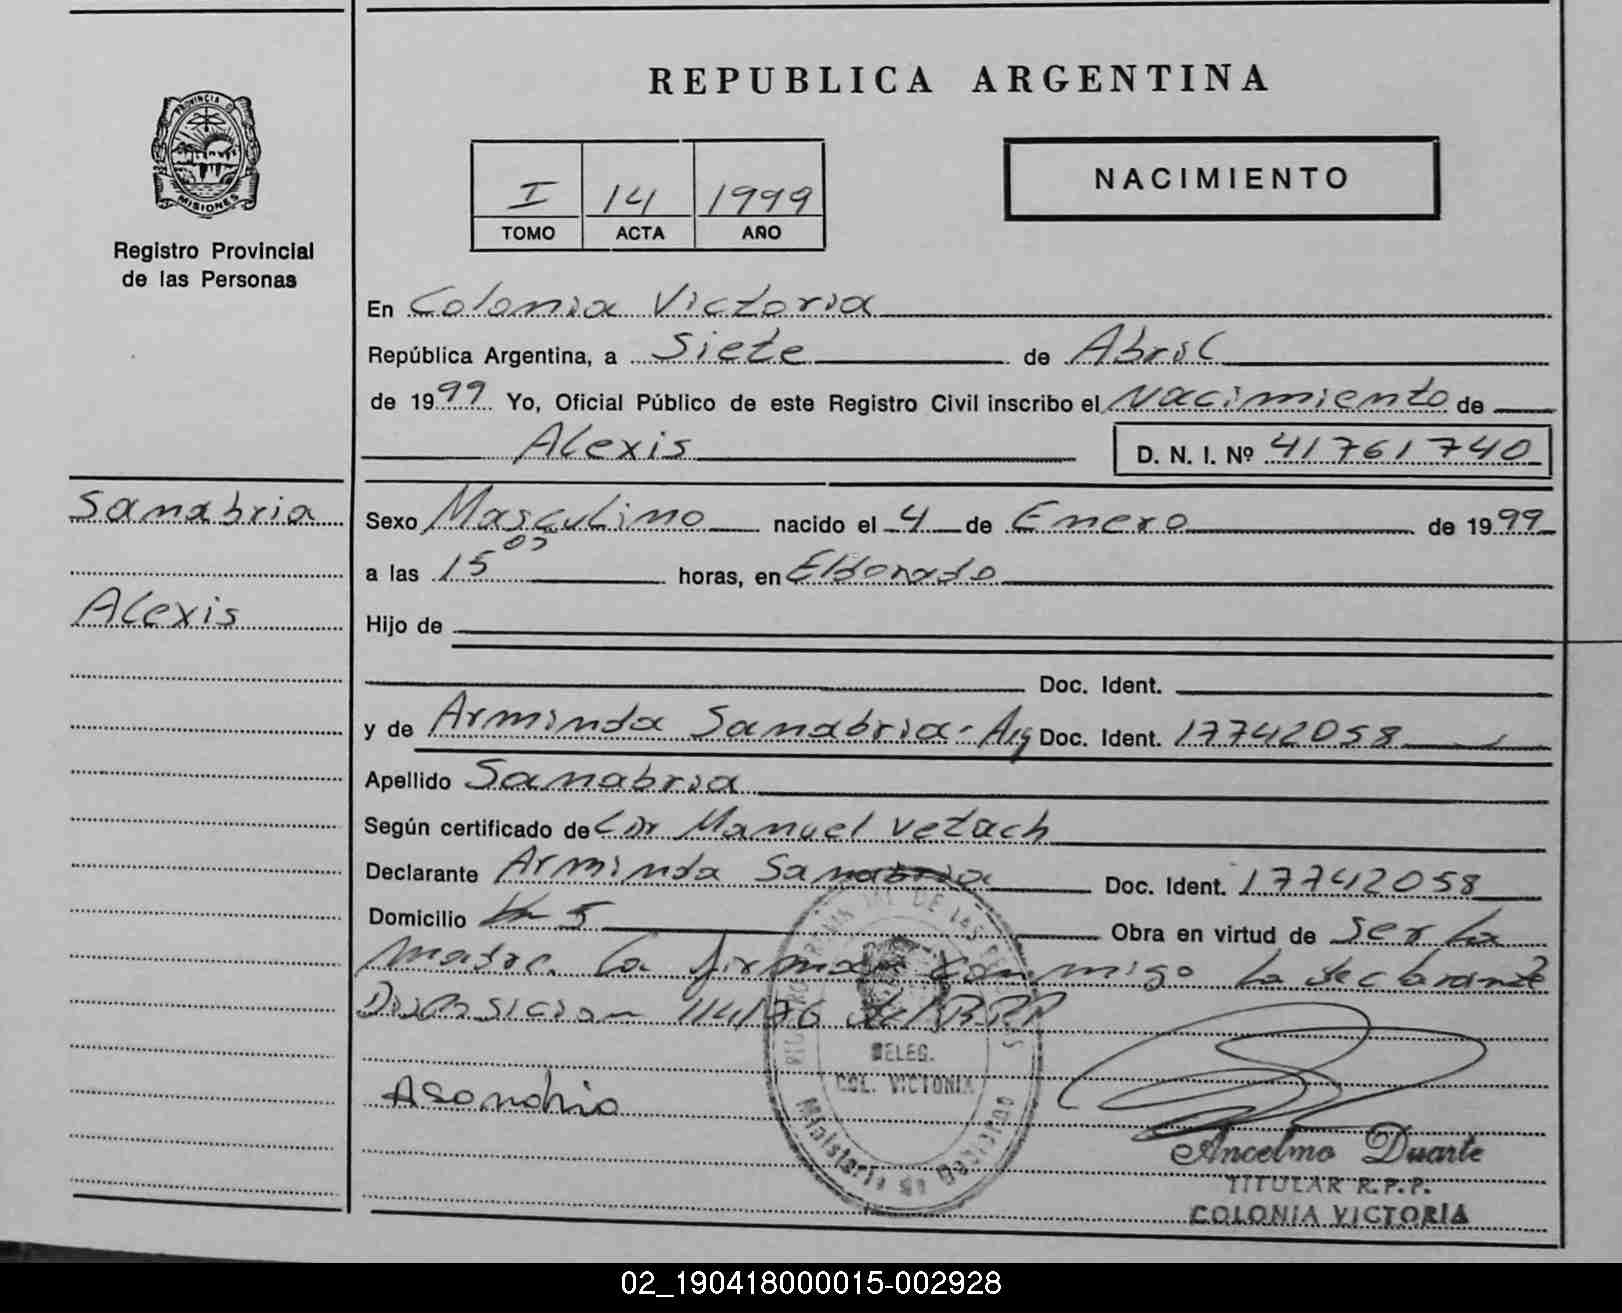 REPUBLICA ARGENTINA
PROVINCIA D
MISIONES
Registro Provincial
de las Personas
I 14 1999
TOMO ACTA AÑO
NACIMIENTO
En Colonia Victoria
República Argentina, a Siete de Abril
de 1999 Yo, Oficial Público de este Registro Civil inscribo el Nacimiento de
Alexis D. N. I. Nº 41761740
Sanabria
Alexis
Sexo Masculino nacido el 4 de Enero de 1999
a las 15 05 horas, en Eldorado
Hijo de
Doc. Ident.
y de Arminda Sanabria - Arg Doc. Ident. 17742058
Apellido Sanabria
Según certificado de Manuel Vetach
Declarante Arminda Sanabria Doc. Ident. 17742058
Domicilio Km 5 Obra en virtud de ser la
madre. La firma conmigo la declarante
Disposicion 114/76 del RPP
DELEG.
COL. VICTORIA
Ministerio de Gobierno
ASanabria
Ancelmo Duarte
TITULAR R.P.P.
COLONIA VICTORIA
02_190418000015-002928